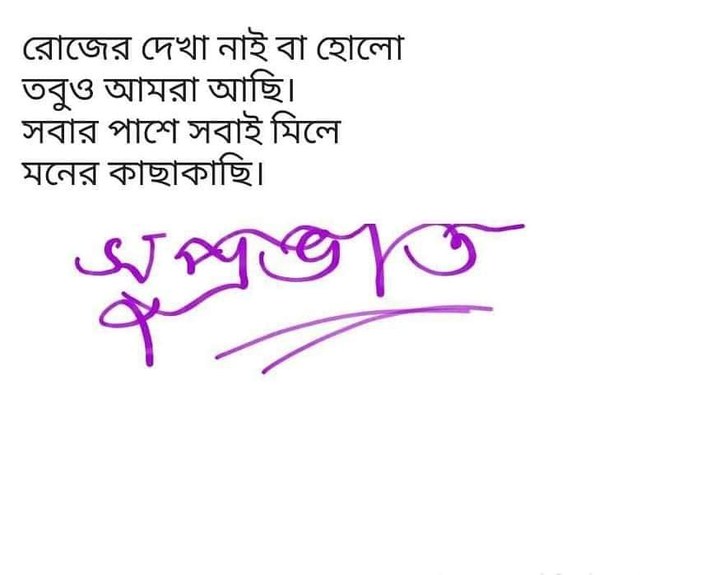 রোজের দেখা নাই বা হোলো
তবুও আমরা আছি।
সবার পাশে সবাই মিলে
মনের কাছাকাছি।
সুপ্রভাত